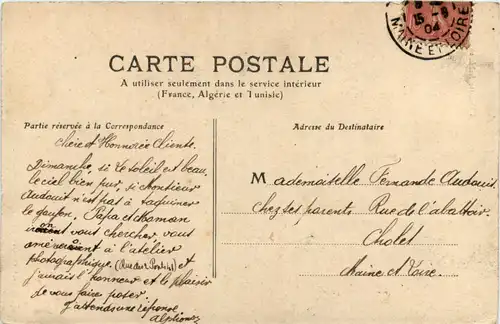 15 -9
04
MAINE ET LOIRE
CARTE POSTALE
A utiliser seulement dans le service intérieur
(France, Algérie et Tunisie)
Partie réservée à la Correspondance
Adresse du Destinataire
Chère et Honnorée Cliente.
Dimanche, si le soleil est beau,
le ciel bien pur, si Monsieur
Audouit n'est pas à taquiner
le goujon, Papa et Maman
vont vous chercher vous
amèneront à l'atelier
photographique, (Rue des) et
j'aurais l'honneur et le plaisir
de vous faire poser.
J'attends une réponse.
Mademoiselle Fernande Audouit
chez ses parents Rue de l'abattoir.
Cholet
Maine et Loire.